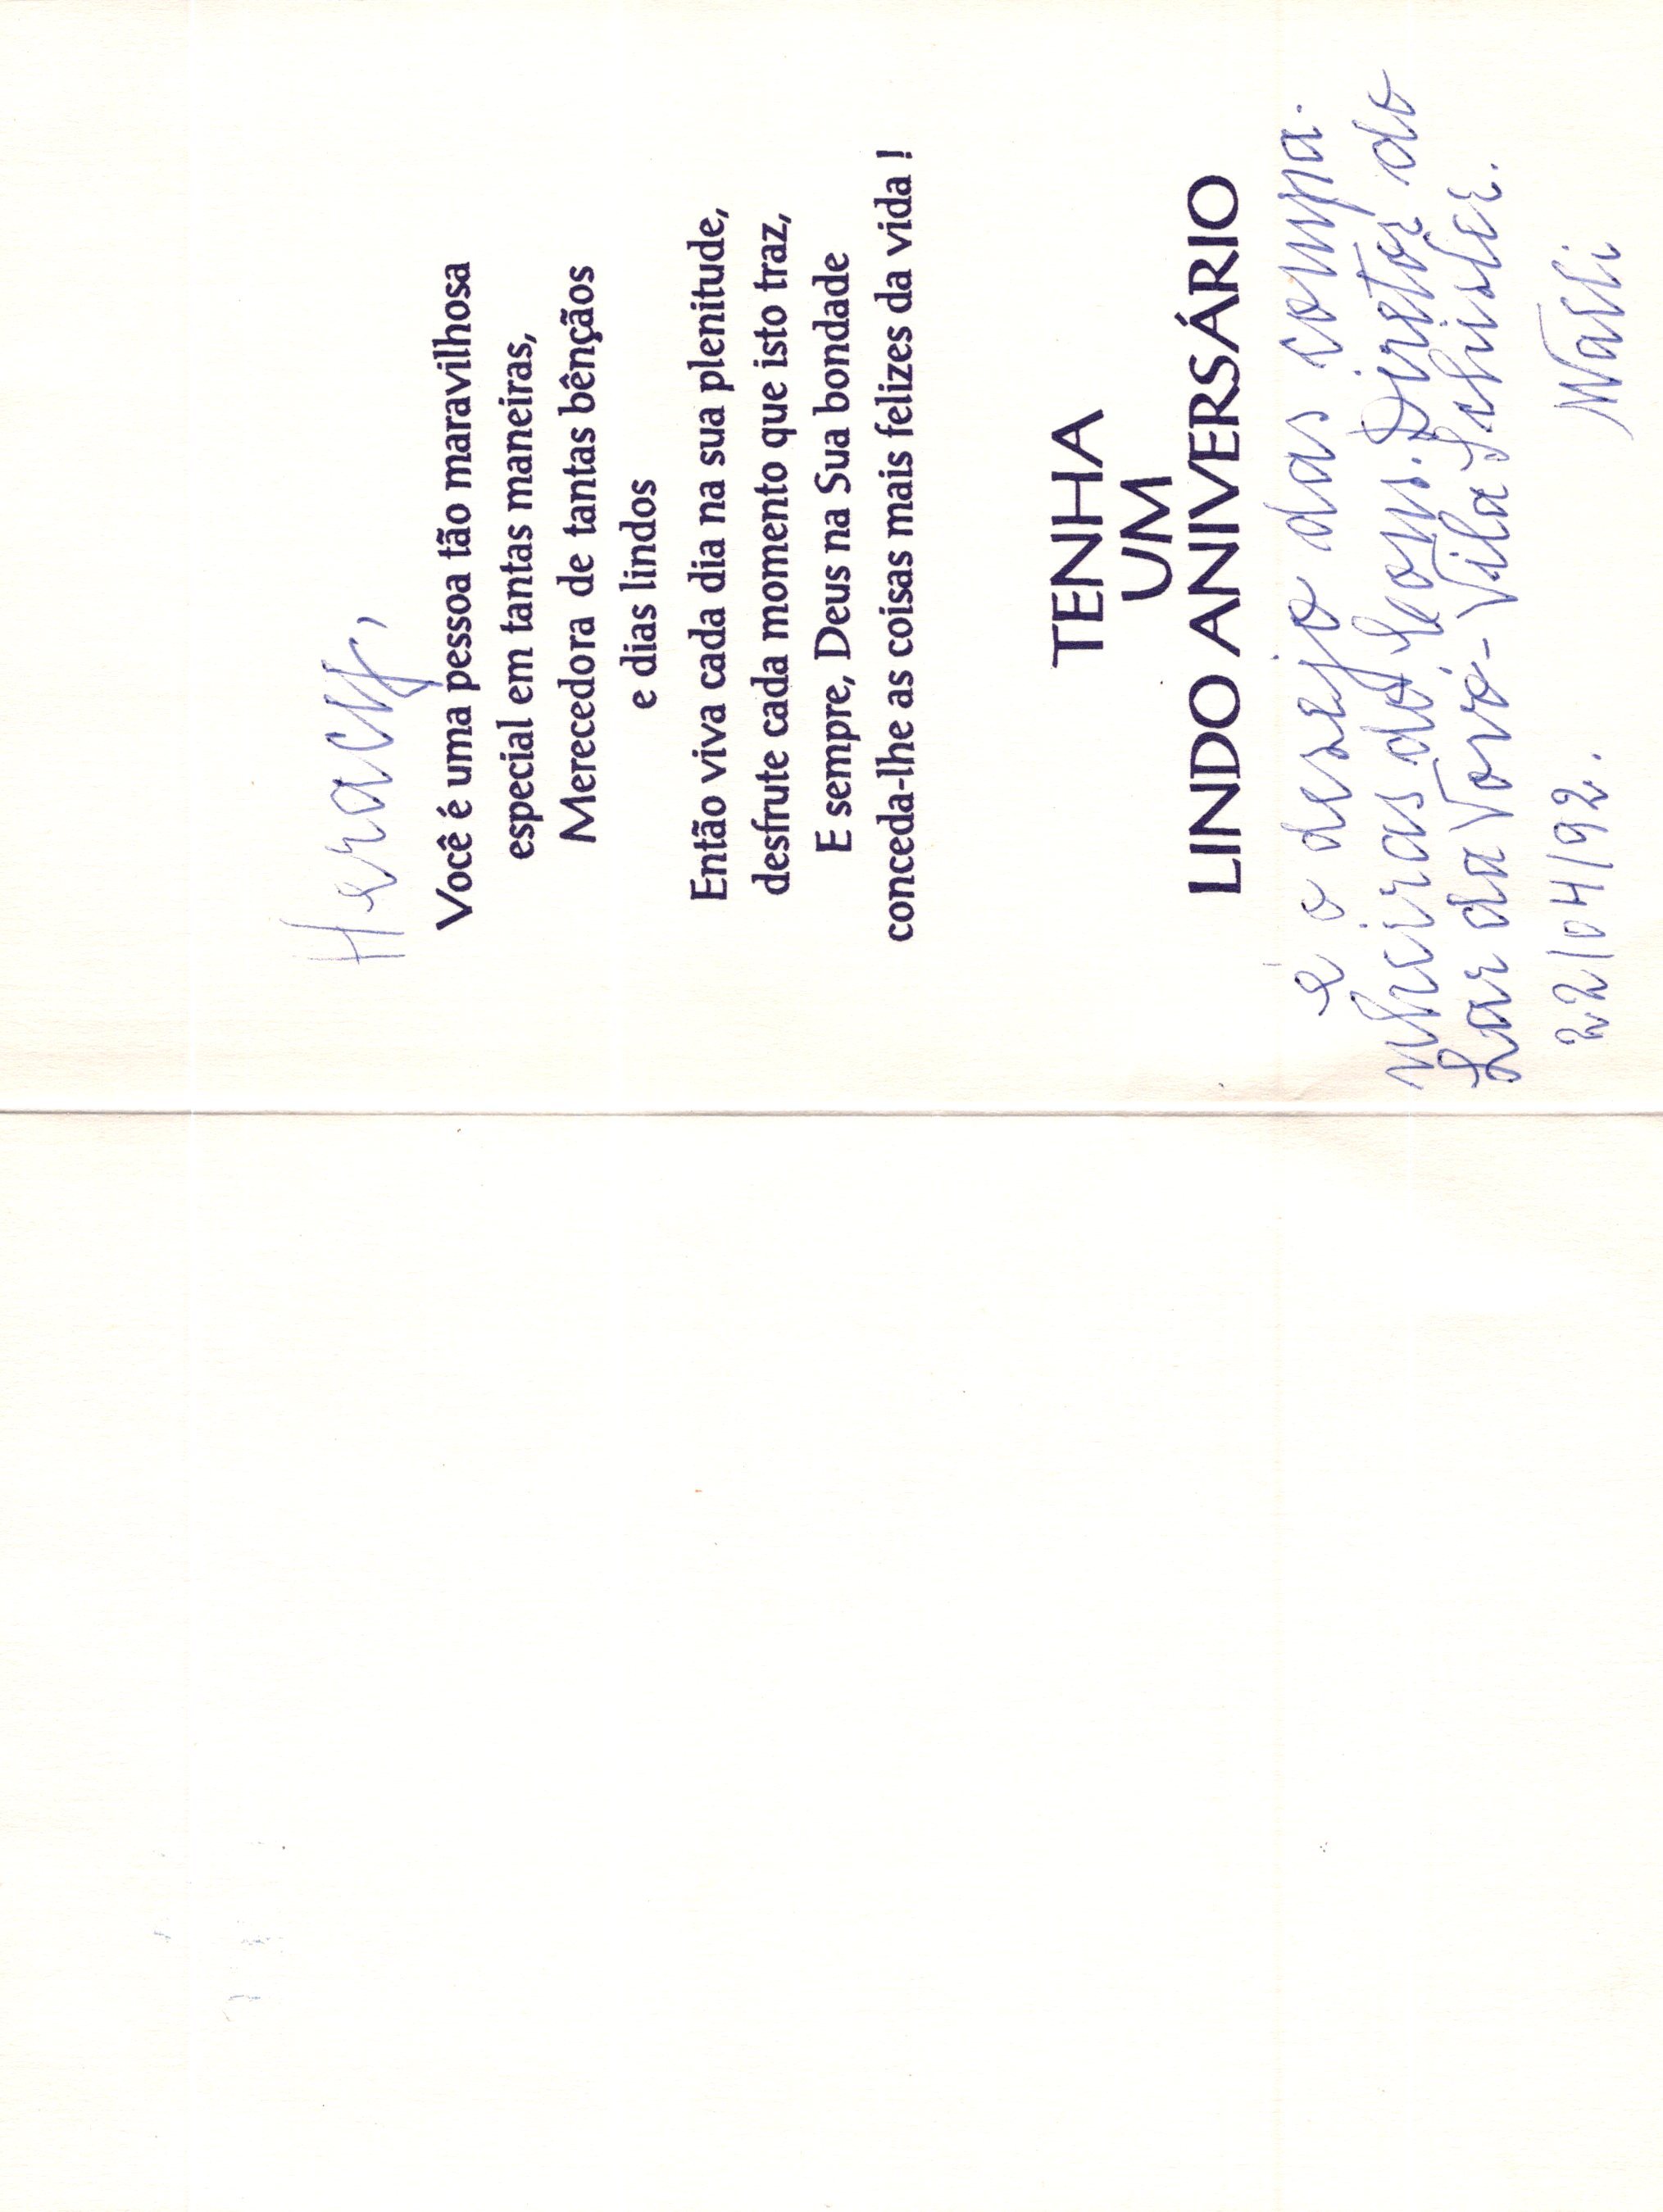 Heracy,
Você é uma pessoa tão maravilhosa
especial em tantas maneiras,
Merecedora de tantas bênçãos
e dias lindos
Então viva cada dia na sua plenitude,
desfrute cada momento que isto traz,
E sempre, Deus na Sua bondade
conceda-lhe as coisas mais felizes da vida !
TENHA
UM
LINDO ANIVERSÁRIO
é o desejo das compa-
nheiras do Cons. Diretor do
Lar da Vovó - Vila
22/04/92.
Wasli